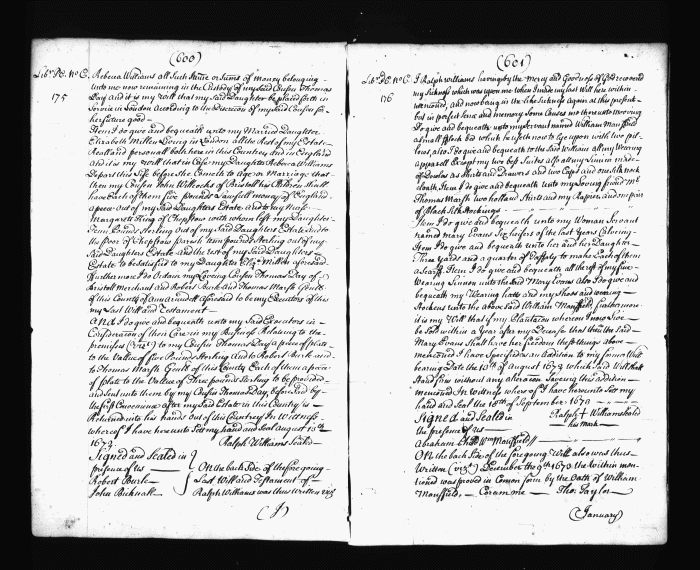 (600)
Lib. P.C. No. C. Rebecca Williams all Such Summe or Sums of Money belonging
unto me now remaining in the Custody of my said Cousen Thomas
175 Day And it is my will that my Said Daughter be placed forth in
Service in London According to the Discretion of my said Cousen for
her future good
Item I do give and bequeath unto my Married Daughter
Elizabeth Millen Living in London all the Rest of my Estate
Reall and personall both here in this Country and in England
And it is my will that in Case my Daughter Rebecca Williams
Depart this Life before She Come to Age or Marriage that
then my Cousen John Willocks of Bristoll his Children Shall
have Each of them five pounds Lawfull money of England
a peice out of my Said Daughters Estate And to my
Margarett King of Chepstow with whom left my Daughter
Tenn Pounds Sterling out of my Said Daughters Estate And to
the poor of Chepstow parish tenn pounds Sterling out of my
Said Daughters Estate And the rest of my Said Daughters
Estate to be left said to my Daughter Eliz. Millen aforesaid
Furthermore I do Ordaine my Loving Cousen Thomas Day of
Bristoll Merchant and Robert Burle and Thomas Marsh Gent.
of this County of Annarundell Aforesaid to be my Executors of this
my Last Will and Testament
And I do give and bequeath unto my Said Executors in
Consideration of their Care in my Business Relating to the
premises (viz.) to my Cousen Thomas Day a piece of plate
to the Vallue of five Pounds Sterling And to Robert Burle and
to Thomas Marsh Gentl. of this County Each of them a piece
of plate to the Vallue of Three pounds Sterling to be provided
and sent unto them by my Cousen Thomas Day beforesaid by
the first Conveniency after my Said Estate in this Country is
Returned into his hands Out of this Country In Witness
whereof I have hereunto Sett my hand and Seal August 13th
1673 Ralph Williams Seal'd
Signed and Sealed in
presence of us
Robert Burle
John Bicknall
On the back Side of the fore going
Last Will and Testament of
Ralph Williams was thus Written viz.
(I)
(601)
Lib. P.C. No. C. I Ralph Williams having by the Mercy and Goodness of God recovered
my Sickness which was upon me when I made my last Will here within
176 mentioned, and now being in the like Sickness again at this present
but in perfect Sence and memory Some Causes me thereunto moving
I do give and bequeath unto my Servant named William Mansfield
a small flock bed which he useth now to Lye upon with two pil-
lows, also I do give and bequeath to the said William all my Wearing
apparell Except my two best Suites also all my Linnen made
of Dowlas as Shirts and Drawers and two Caps and one Silk neck
cloath Item I do give and bequeath unto my Loving friend Mr.
Thomas Marsh two holland Shirts and my Rapier and one pair
of Black Silk Stockings
Item I do give and bequeath unto my Woman Servant
named Mary Evans Six heifers of the last Years Calving
Item I do give and bequeath unto her and her Daughter
Three yards and a quarter of Duffaly to make Each of them
a Scarfe. Item I do give and bequeath all the rest of my fine
Wearing Linnen unto the said Mary Evans Also I do give and
bequeath my Wearing hatts and my Shoes and wearing
Stockens unto the above said William Mansfield, furthermore
it is my Will that if my Plantation whereon I now Live
be Sold within a Year after my Decease that then the said
Mary Evans Shall have her freedom these things above
mentioned I have Specified as Addition to my former Will
bearing Date the 13th of August 1673 which said Will Shall
Stand Law without any alteration Saveing this addition
mentioned In Witness whereof I have hereunto Sett my
hand and Seal the 18th of September 1673
Signed and Sealed in
the presence of us
Ralph + Williams Seal'd
his mark
Abraham Wm. Mansfield
On the back Side of the foregoing Will also was thus
Written (viz.) December the 9th 1673 the within men-
tioned was proved in Comon form by the oath of William
Mansfield, Coram me Tho. Taylor
(January)